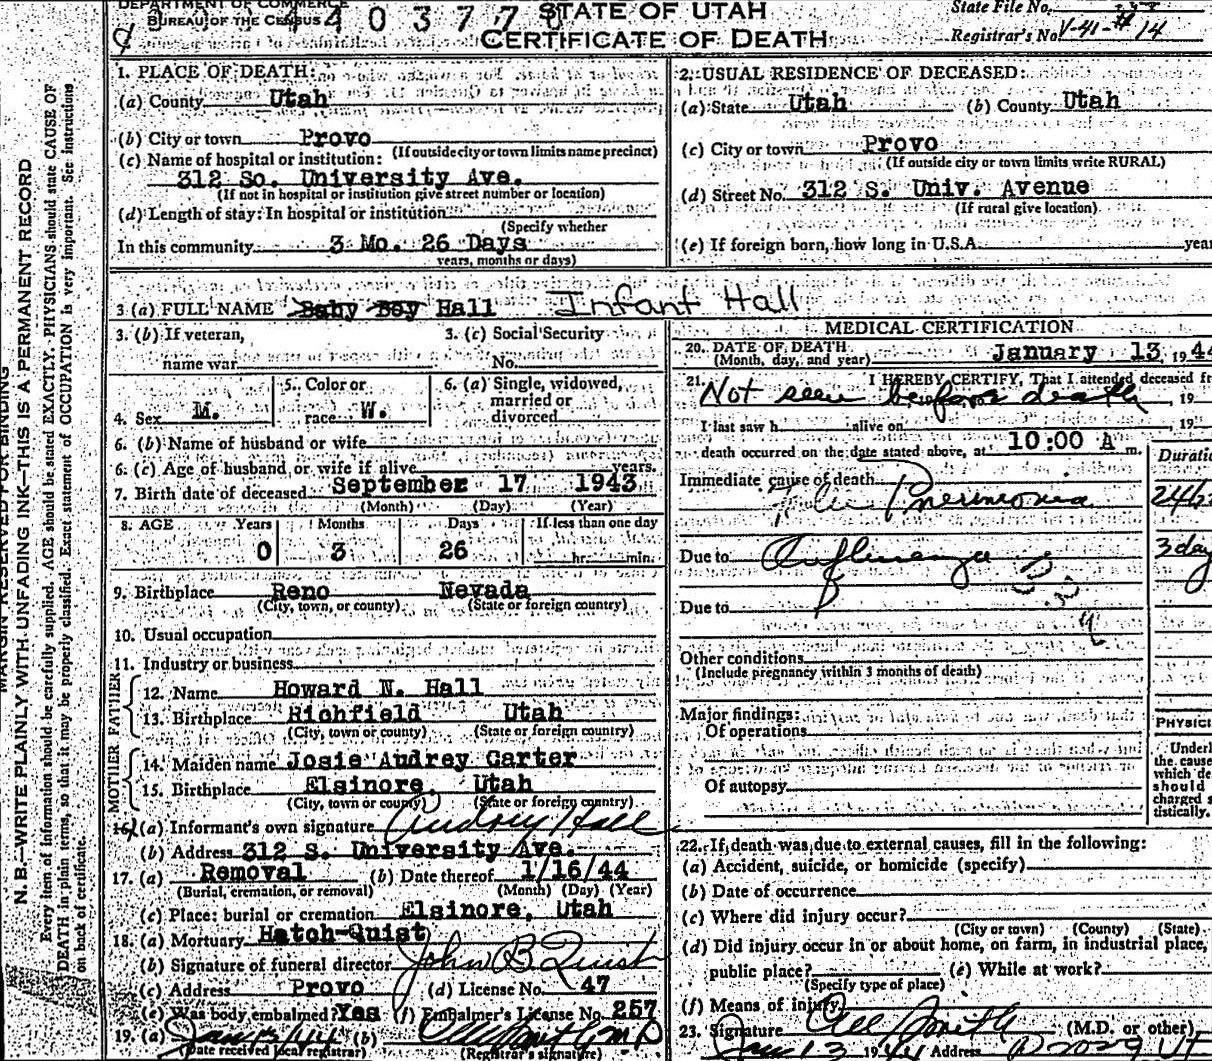 DEPARTMENT OF COMMERCE
BUREAU OF THE CENSUS
4 4 0 3 7 7
STATE OF UTAH
CERTIFICATE OF DEATH
State File No.
Registrar's No. V-41-# 14
MARGIN RESERVED FOR BINDING
N. B.—WRITE PLAINLY WITH UNFADING INK—THIS IS A PERMANENT RECORD
Every item of information should be carefully supplied. AGE should be stated EXACTLY. PHYSICIANS should state CAUSE OF
DEATH in plain terms, so that it may be properly classified. Exact statement of OCCUPATION is very important. See instructions
on back of certificate.
1. PLACE OF DEATH:
(a) County Utah
(b) City or town Provo
(If outside city or town limits name precinct)
(c) Name of hospital or institution:
312 So. University Ave.
(If not in hospital or institution give street number or location)
(d) Length of stay: In hospital or institution
(Specify whether
In this community 3 Mo. 26 Days
years, months or days)
2. USUAL RESIDENCE OF DECEASED:
(a) State Utah (b) County Utah
(c) City or town Provo
(If outside city or town limits write RURAL)
(d) Street No. 312 S. Univ. Avenue
(If rural give location)
(e) If foreign born, how long in U.S.A. year
3 (a) FULL NAME Baby Boy Hall Infant Hall
3. (b) If veteran, 3. (c) Social Security
name war No.
4. Sex M. 5. Color or race W. 6. (a) Single, widowed, married or divorced
6. (b) Name of husband or wife
6. (c) Age of husband or wife if alive years.
7. Birth date of deceased September 17 1943
(Month) (Day) (Year)
8. AGE Years Months Days If less than one day
0 3 26 hr. min.
9. Birthplace Reno Nevada
(City, town, or county) (State or foreign country)
10. Usual occupation
11. Industry or business
FATHER
12. Name Howard N. Hall
13. Birthplace Richfield Utah
(City, town or county) (State or foreign country)
MOTHER
14. Maiden name Josie Audrey Carter
15. Birthplace Elsinore, Utah
(City, town or county) (State or foreign country)
16. (a) Informant's own signature Audrey Hall
(b) Address 312 S. University Ave.
17. (a) Removal (b) Date thereof 1/16/44
(Burial, cremation, or removal) (Month) (Day) (Year)
(c) Place: burial or cremation Elsinore, Utah
18. (a) Mortuary Hatch-Quist
(b) Signature of funeral director John B Quist
(c) Address Provo (d) License No. 47
(e) Was body embalmed? Yes (f) Embalmer's License No. 257
19. (a) Jan 13/44 (b)
(Date received local registrar) (Registrar's signature)
MEDICAL CERTIFICATION
20. DATE OF DEATH
(Month, day, and year) January 13, 1944
21. I HEREBY CERTIFY, That I attended deceased fr
Not seen before death, 19
I last saw h alive on , 19
death occurred on the date stated above, at 10:00 A m.
Duratio
Immediate cause of death
Pneumonia
Due to Influenza 3 day
Due to
Other conditions
(Include pregnancy within 3 months of death)
Major findings:
Of operations
Of autopsy
PHYSICI
Underl
the cause
which de
should
charged s
tistically.
22. If death was due to external causes, fill in the following:
(a) Accident, suicide, or homicide (specify)
(b) Date of occurrence
(c) Where did injury occur?
(City or town) (County) (State)
(d) Did injury occur in or about home, on farm, in industrial place,
public place? (e) While at work?
(Specify type of place)
(f) Means of injury
23. Signature (M.D. or other)
Jan 13 1944 Address